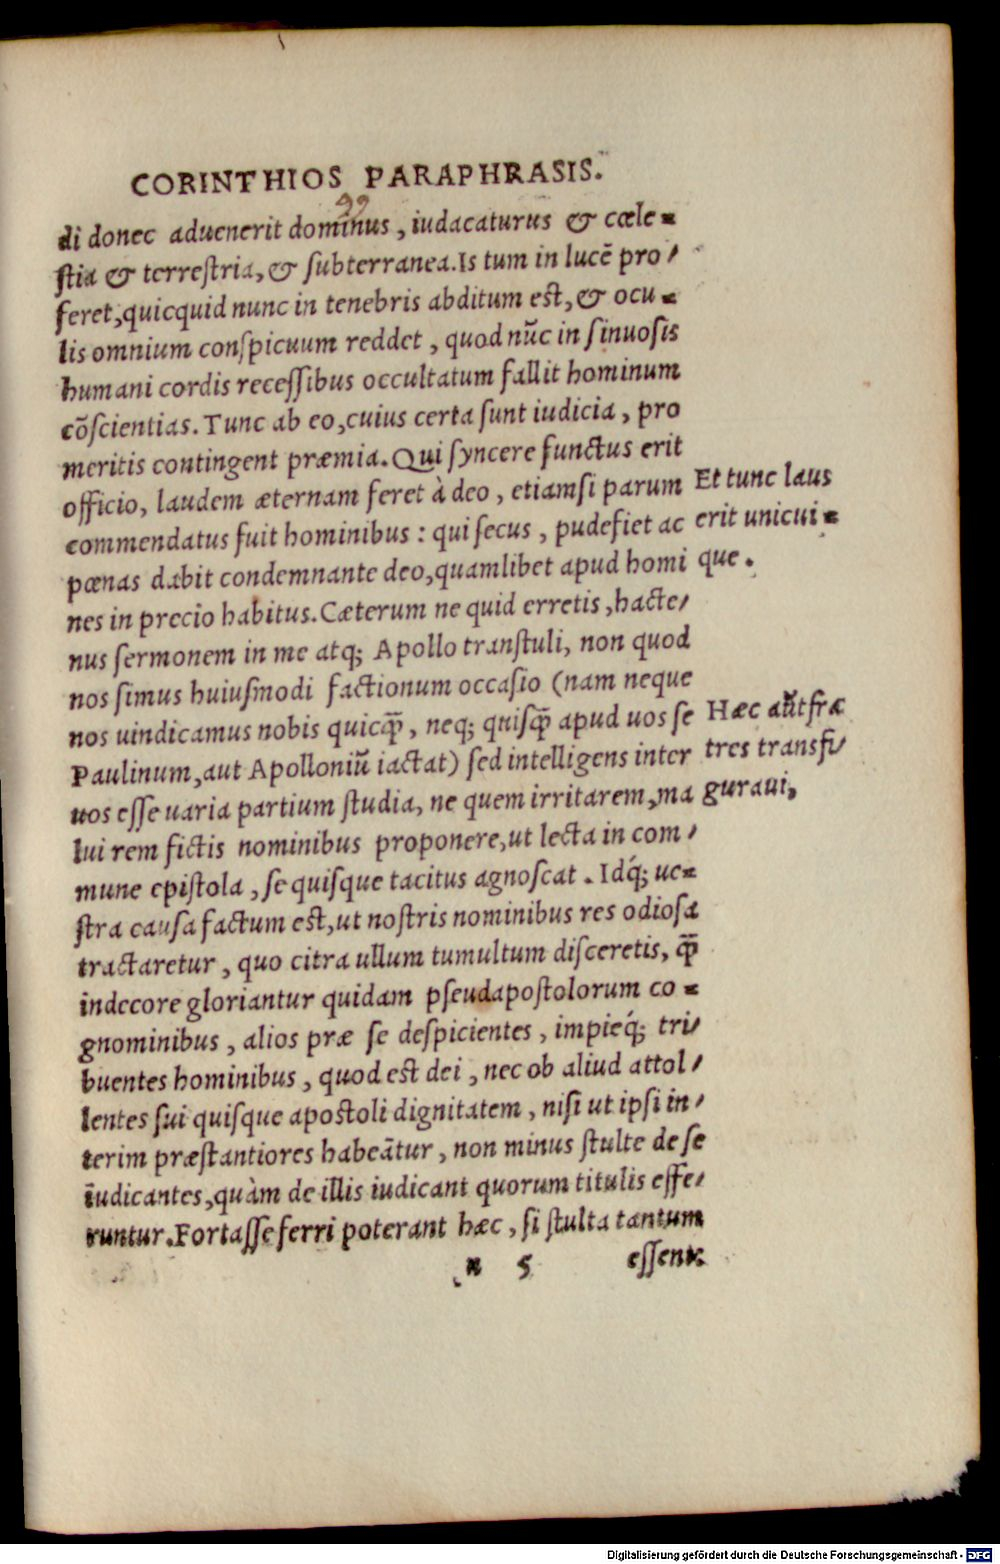 CORINTHIOS PARAPHRASIS.
99
di donec aduenerit dominus, iudacaturus & cœle-
stia & terrestria, & subterranea. Is tum in lucē pro-
feret, quicquid nunc in tenebris abditum est, & ocu-
lis omnium conspicuum reddet, quod nūc in sinuosis
humani cordis recessibus occultatum fallit hominum
cōscientias. Tunc ab eo, cuius certa sunt iudicia, pro
meritis contingent præmia. Qui syncere functus erit
officio, laudem æternam feret à deo, etiamsi parum
commendatus fuit hominibus: qui secus, pudefiet ac
pœnas dabit condemnante deo, quamlibet apud homi
nes in precio habitus. Cæterum ne quid erretis, hacte-
nus sermonem in me atq; Apollo transtuli, non quod
nos simus huiusmodi factionum occasio (nam neque
nos uindicamus nobis quicq̄, neq; quisq̄ apud uos se
Paulinum, aut Apolloniū iactat) sed intelligens inter
uos esse uaria partium studia, ne quem irritarem, ma
lui rem fictis nominibus proponere, ut lecta in com-
mune epistola, se quisque tacitus agnoscat. Idq́; ue-
stra causa factum est, ut nostris nominibus res odiosa
tractaretur, quo citra ullum tumultum disceretis, q̄
indecore gloriantur quidam pseudapostolorum co-
gnominibus, alios præ se despicientes, impieq́; tri-
buentes hominibus, quod est dei, nec ob aliud attol-
lentes sui quisque apostoli dignitatem, nisi ut ipsi in-
terim præstantiores habeātur, non minus stulte de se
iudicantes, quàm de illis iudicant quorum titulis effe-
runtur. Fortasse ferri poterant hæc, si stulta tantum
n 5 essent.
Et tunc laus
erit unicui-
que.
Hæc aūt fræ
tres transfi-
guraui,
Digitalisierung gefördert durch die Deutsche Forschungsgemeinschaft - DFG